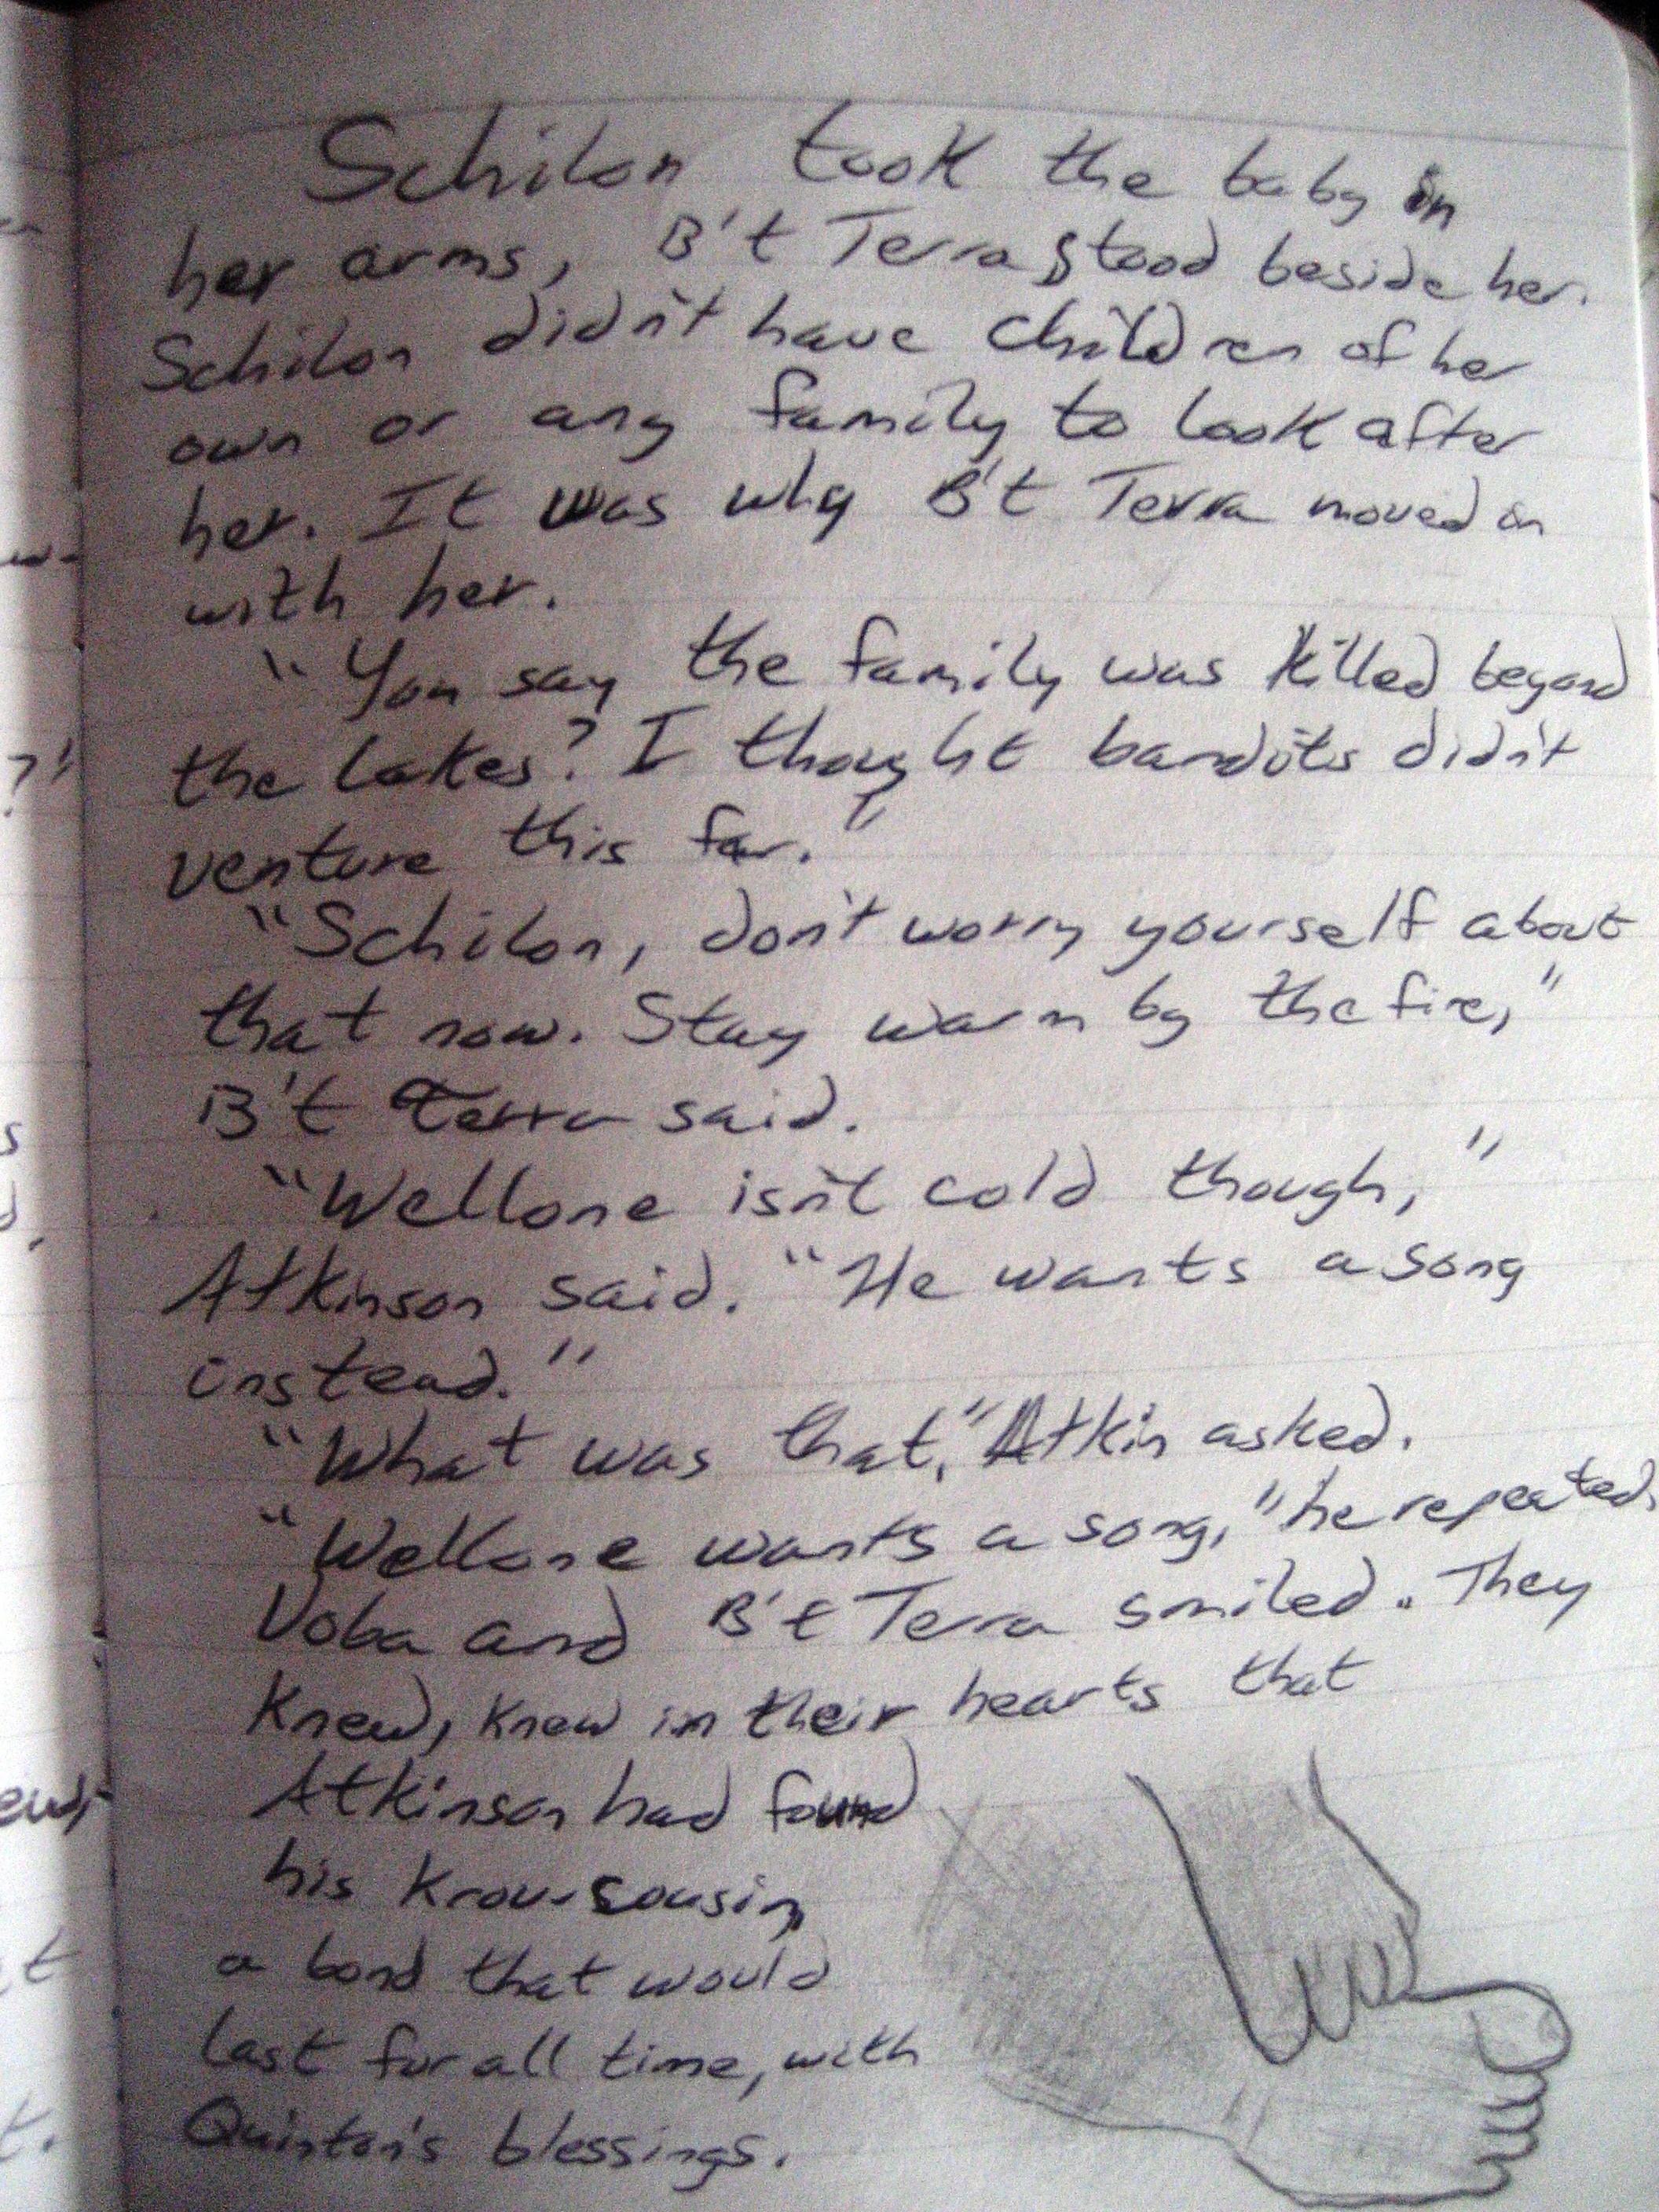 Schilon took the baby in
her arms, B't Terra stood beside her.
Schilon didn't have children of her
own or any family to look after
her. It was why B't Terra moved in
with her.
"You say the family was killed beyond
the lakes? I thought bandits didn't
venture this far."
"Schilon, don't worry yourself about
that now. Stay warm by the fire,"
B't Terra said.
"Wellone isn't cold though,"
Atkinson said. "He wants a song
instead."
"What was that," Atkin asked.
"Wellone wants a song," he repeated.
Voba and B't Terra smiled. They
knew, knew in their hearts that
Atkinson had found
his
a bond that would
last for all time, with
Quinton's blessings.